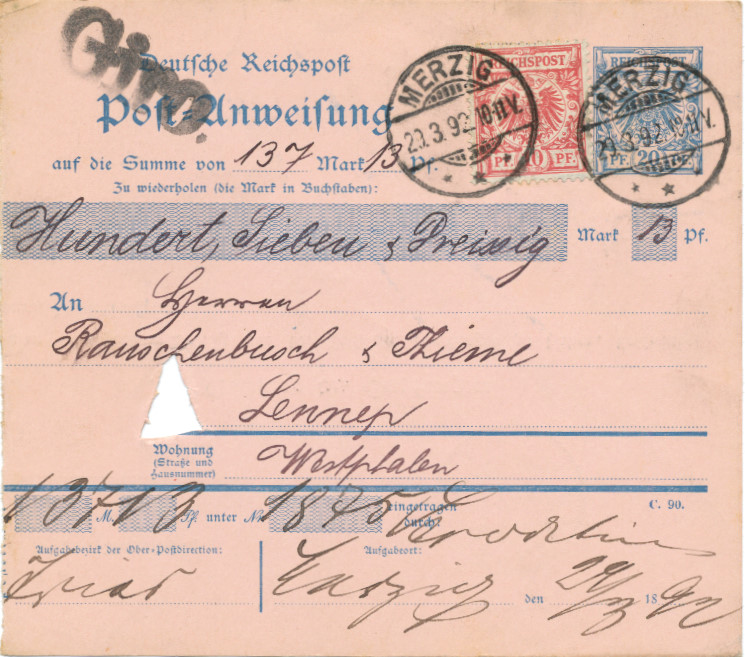 Giro.
Deutsche Reichspost
Post-Anweisung
auf die Summe von 137 Mark 13 Pf.
Zu wiederholen (die Mark in Buchstaben):
Hundert, Sieben & Dreissig Mark 13 Pf.
REICHSPOST
PF. 10 PF.
MERZIG
29.3.92 10-11 V.
* *
REICHSPOST
PF. 20 PF.
MERZIG
29.3.92 10-11 V.
* *
An Herren
Rauschenbusch & Thieme
Lennep
Wohnung
(Straße und
Hausnummer)
Westphalen
137 M. 13 Pf. unter No 1875 eingetragen
durch:
C. 90.
Aufgabebezirk der Ober-Postdirection:
Aufgabeort:
Trier
Merzig den 29/3 1892